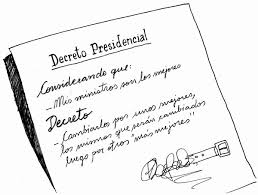 Decreto Presidencial
Considerando que:
-Mis ministros son los mejores
Decreto
-Cambiarlos por unos mejores,
los mismos que serán cambiados
luego por otros "más mejores"